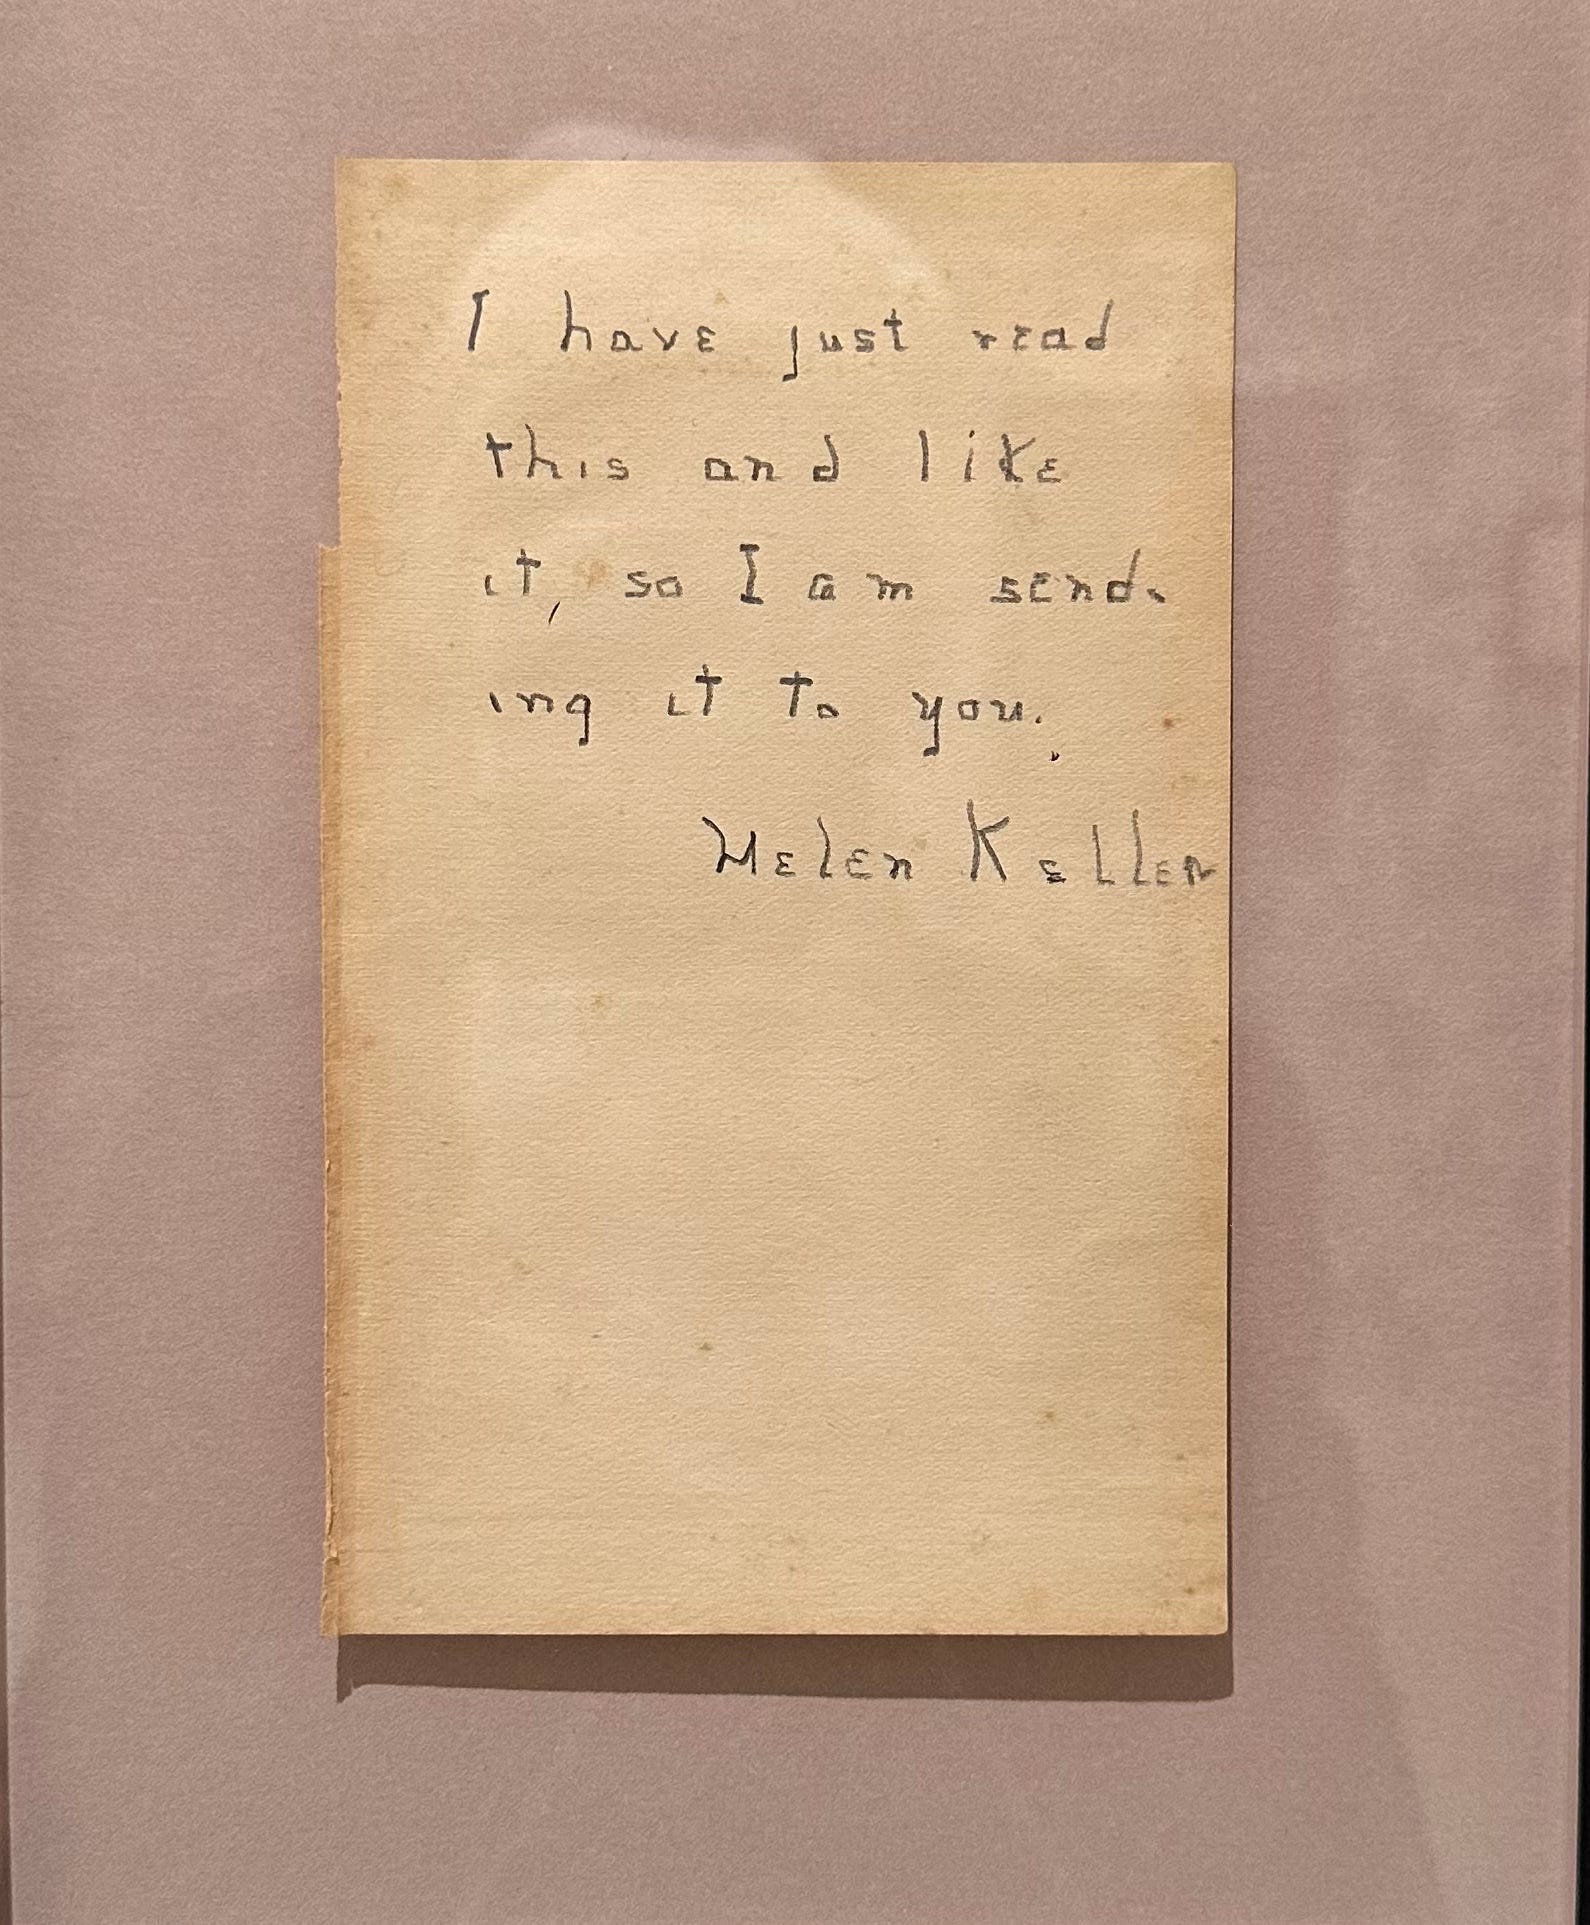 I have just read
this and like
it, so I am send-
ing it to you.
Helen Keller